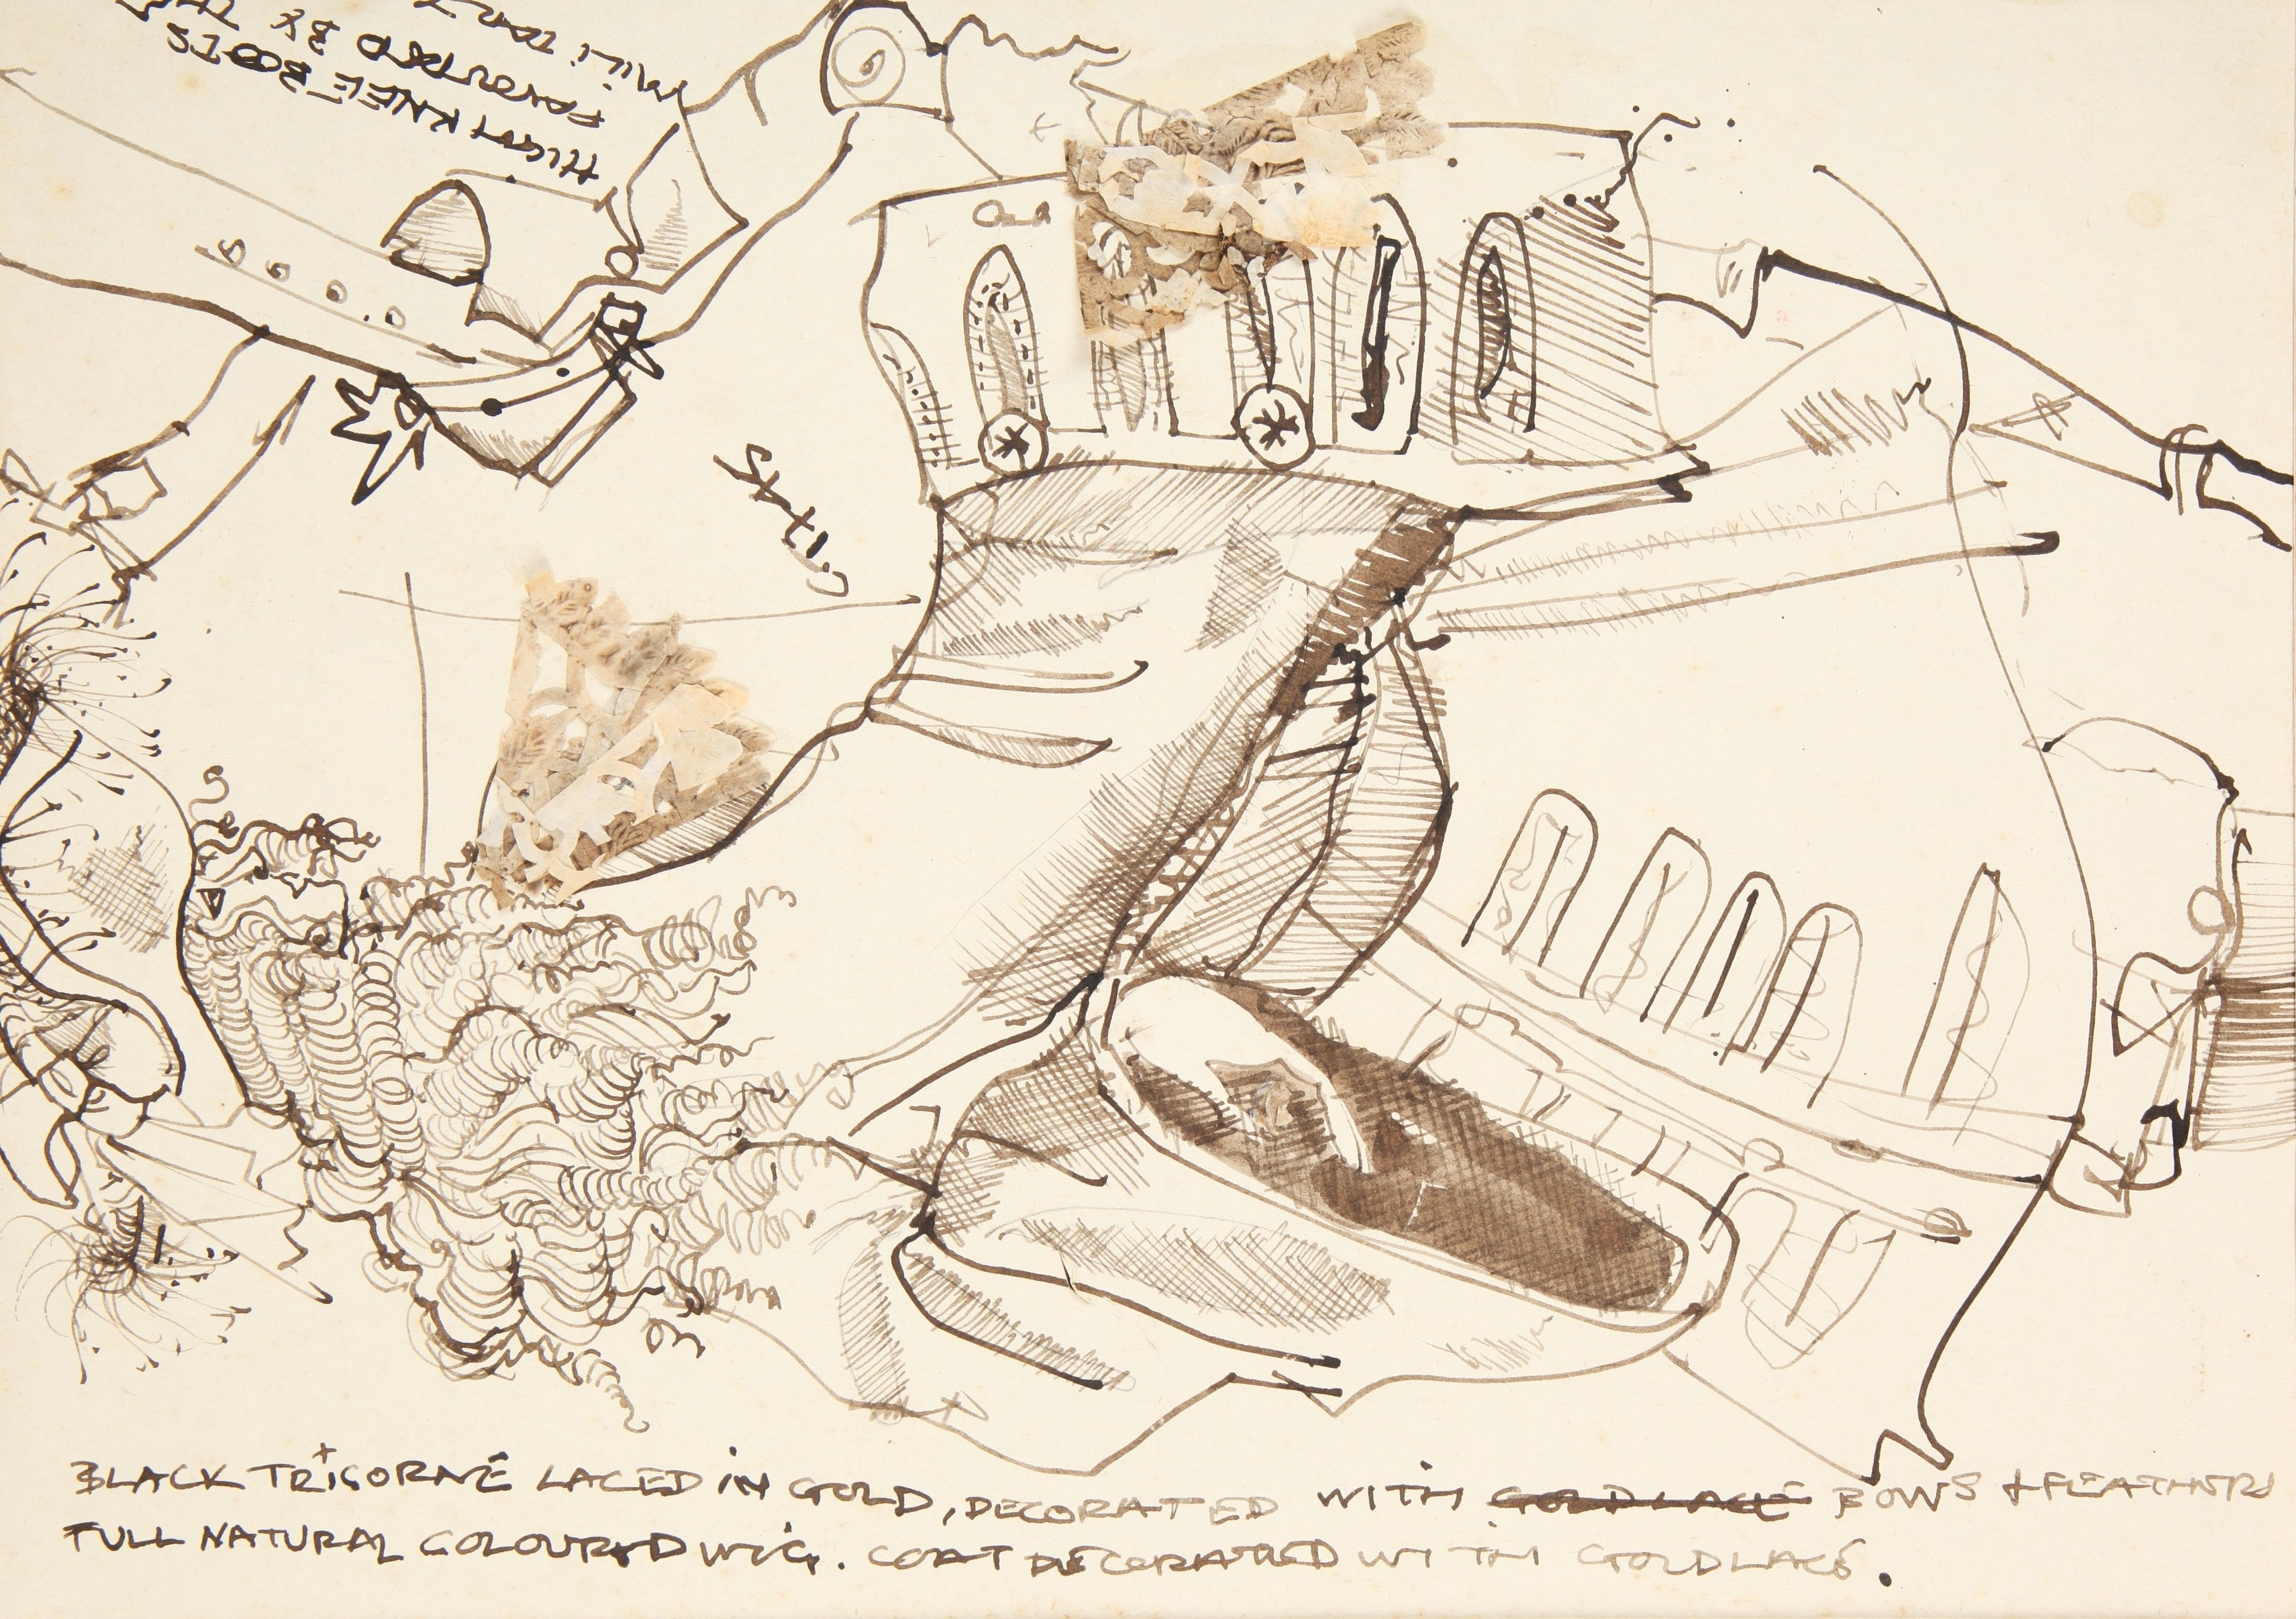 HIGH KNEE BOOTS
FAVOURED BY TH
MILITARY
C1745
BLACK TRICORNE LACED IN GOLD, DECORATED WITH GOLD LACE BOWS + FEATHERS
FULL NATURAL COLOURED WIG. COAT DECORATED WITH GOLD LACE.